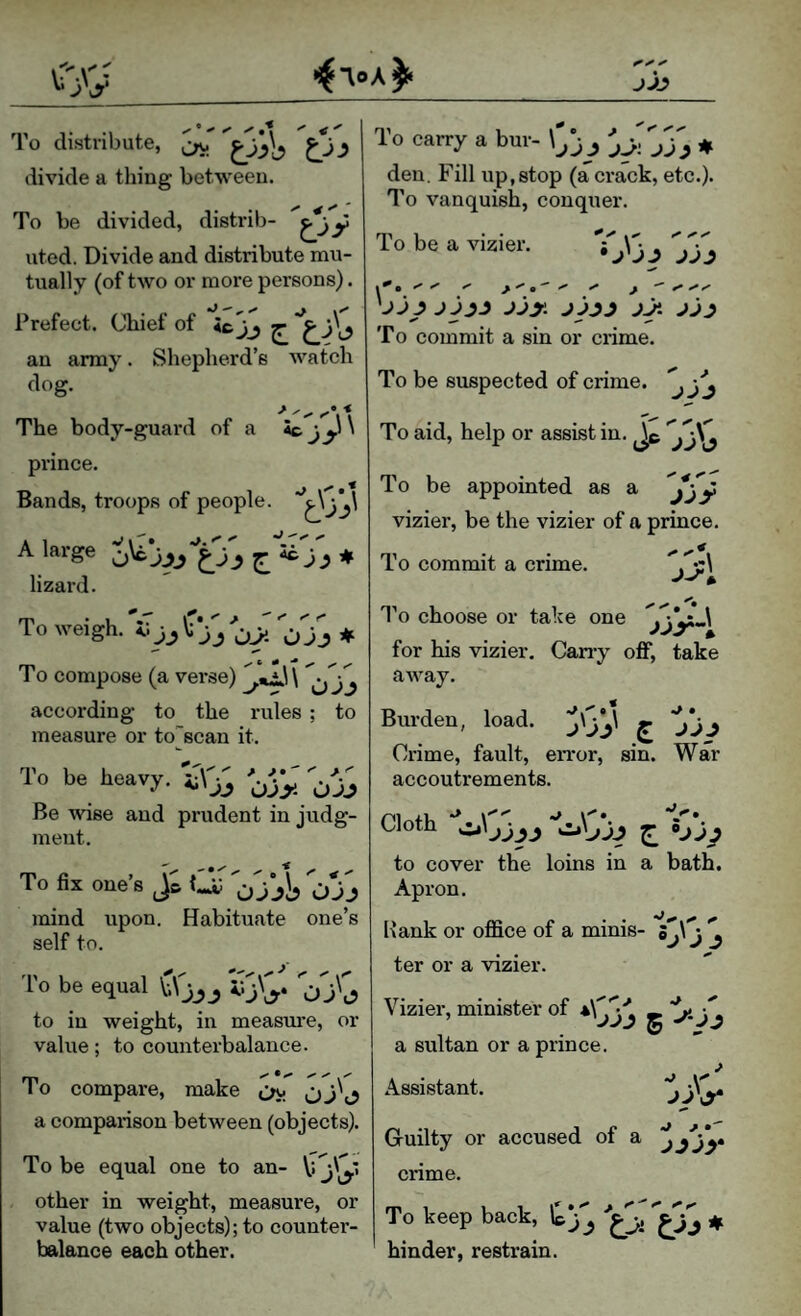 وَزَرَ
﴿٦٥٨﴾
تَوَازَنَا
To carry a bur- وَزَرَ يَزِرُ وِزْرًا *
den. Fill up, stop (a crack, etc.).
To vanquish, conquer.
To be a vizier. وَزَرَ وِزَارَةً
وَزَرَ يَزِرُ وَوَزِرَ يَوْزَرُ وَوُزِرَ وِزْرًا
To commit a sin or crime.
To be suspected of crime. وُزِرَ
To aid, help or assist in. وَازَرَ عَلَى
To be appointed as a تَوَزَّرَ
vizier, be the vizier of a prince.
To commit a crime. اِتَّزَرَ
To choose or take one اِسْتَوْزَرَ
for his vizier. Carry off, take
away.
Burden, load. وِزْرٌ ج أَوْزَارٌ
Crime, fault, error, sin. War
accoutrements.
Cloth وِزْرَةٌ ج وِزْرَاتٌ وَوِزَرَاتٌ
to cover the loins in a bath.
Apron.
Rank or office of a minis- وِزَارَةٌ
ter or a vizier.
Vizier, minister of وَزِيرٌ ج وُزَرَاءُ
a sultan or a prince.
Assistant. مُوَازِرٌ
Guilty or accused of a مَوْزُورٌ
crime.
To keep back, وَزَعَ يَزَعُ وَزْعًا *
hinder, restrain.
To distribute, وَزَّعَ وَأَوْزَعَ بَيْنَ
divide a thing between.
To be divided, distrib- تَوَزَّعَ
uted. Divide and distribute mu-
tually (of two or more persons).
Prefect. Chief of وَازِعٌ ج وَزَعَةٌ
an army. Shepherd's watch
dog.
The body-guard of a الْوَزَعَةُ
prince.
Bands, troops of people. أَوْزَاعٌ
A large وَزَغَةٌ ج وَزَغٌ وَوِزْغَانٌ *
lizard.
To weigh. وَزَنَ يَزِنُ وَزْنًا وَزِنَةً *
To compose (a verse) وَزَنَ الشِّعْرَ
according to the rules ; to
measure or to scan it.
To be heavy. وَزُنَ يَوْزُنُ وَزَانَةً
Be wise and prudent in judg-
ment.
To fix one's وَزَّنَ وَأَوْزَنَ نَفْسًا عَلَى
mind upon. Habituate one's
self to.
To be equal وَازَنَ مُوَازَنَةً وَوِزَانًا
to in weight, in measure, or
value ; to counterbalance.
To compare, make وَازَنَ بَيْنَ
a comparison between (objects).
To be equal one to an- تَوَازَنَا
other in weight, measure, or
value (two objects); to counter-
balance each other.